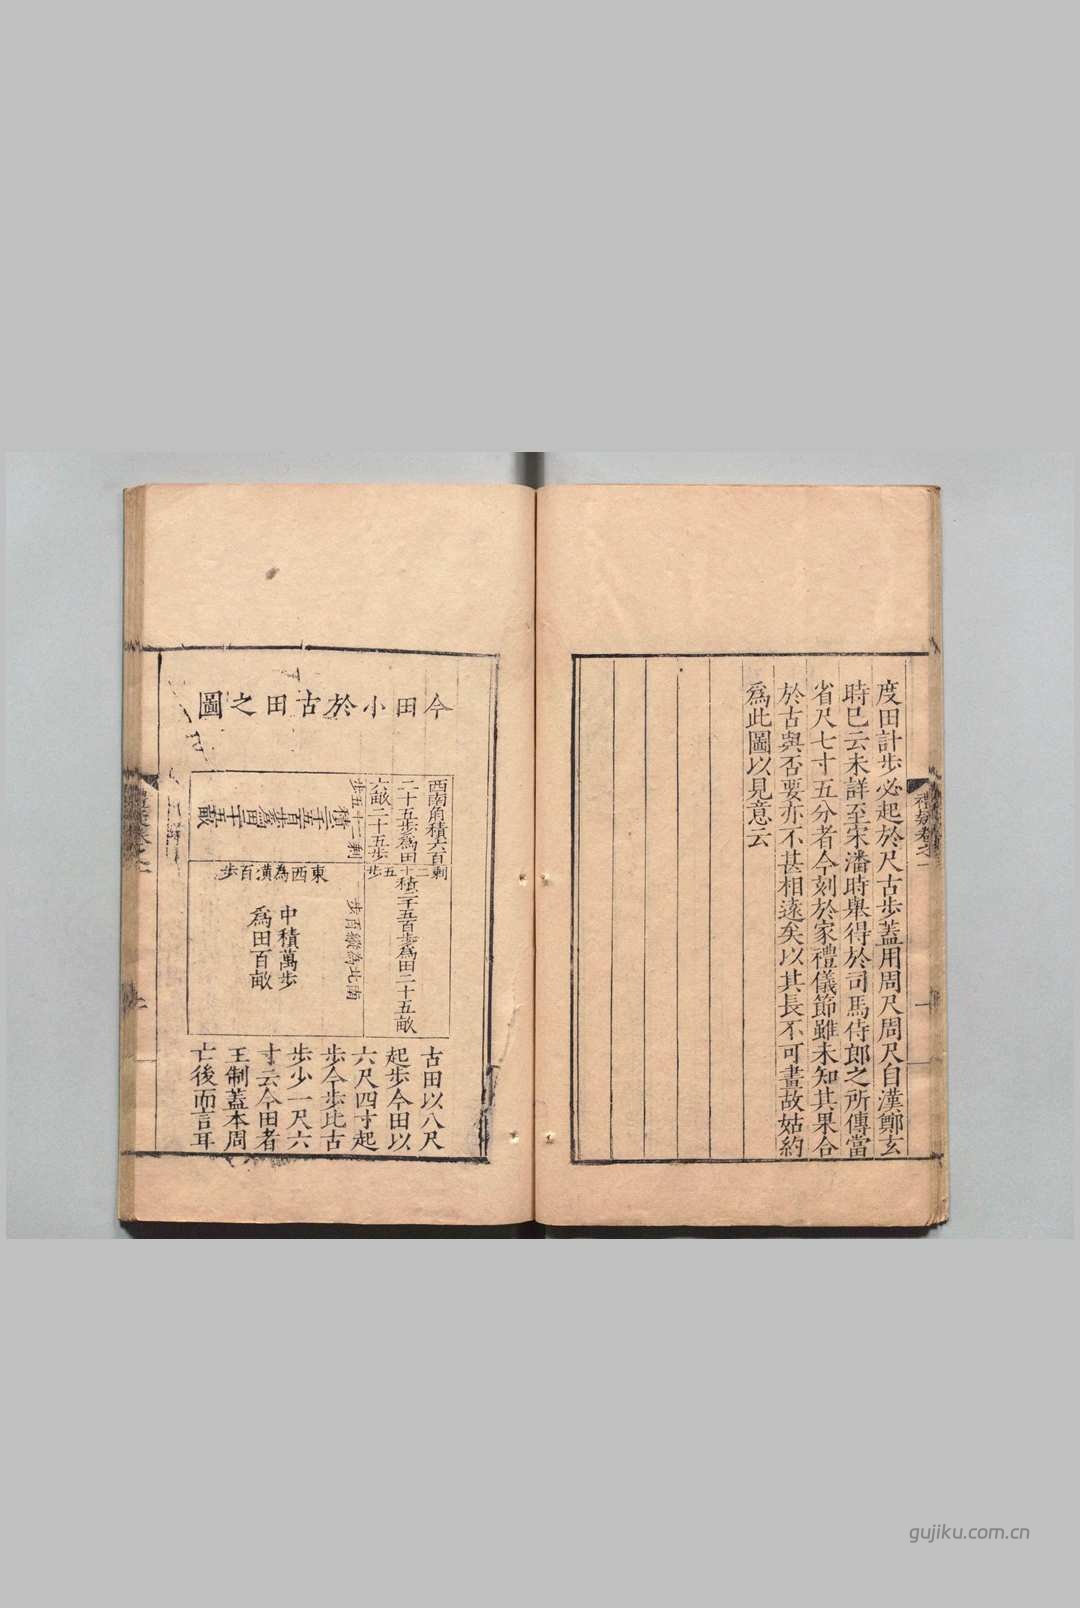 度田計步必起於尺古步蓋用周尺周尺自漢鄭玄
時已云未詳至宋潘時舉得於司馬侍郎之所傳當
省尺七寸五分者今刻於家禮儀節雖未知其果合
於古與否要亦不甚相遠矣以其長不可畫故姑約
爲此圖以見意云
今田小於古田之圖
西南角積六百
二十五步爲田
六畝二十五步
剩二
五步
積二千五百步爲田二十五畝
積二千五百步爲田二十五畝
東西為濶百步
南北為縱百步
中積萬步
爲田百畝
古田以八尺
起步今田以
六尺四寸起
步今步比古
步少一尺六
寸云今田者
王制蓋本周
亡後而言耳
gujiku.com.cn